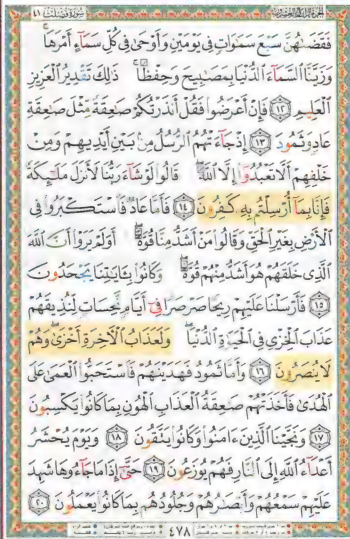 سورة فصلت ٤١
فَقَضَىٰهُنَّ سَبْعَ سَمَٰوَاتٍ فِي يَوْمَيْنِ وَأَوْحَىٰ فِي كُلِّ سَمَآءٍ أَمْرَهَا ۚ
وَزَيَّنَّا ٱلسَّمَآءَ ٱلدُّنْيَا بِمَصَٰبِيحَ وَحِفْظًا ۚ ذَٰلِكَ تَقْدِيرُ ٱلْعَزِيزِ
ٱلْعَلِيمِ ١٢ فَإِنْ أَعْرَضُوا۟ فَقُلْ أَنذَرْتُكُمْ صَٰعِقَةً مِّثْلَ صَٰعِقَةِ
عَادٍ وَثَمُودَ ١٣ إِذْ جَآءَتْهُمُ ٱلرُّسُلُ مِنۢ بَيْنِ أَيْدِيهِمْ وَمِنْ
خَلْفِهِمْ أَلَّا تَعْبُدُوٓا۟ إِلَّا ٱللَّهَ ۖ قَالُوا۟ لَوْ شَآءَ رَبُّنَا لَأَنزَلَ مَلَٰٓئِكَةً
فَإِنَّا بِمَآ أُرْسِلْتُم بِهِۦ كَٰفِرُونَ ١٤ فَأَمَّا عَادٌ فَٱسْتَكْبَرُوا۟ فِي
ٱلْأَرْضِ بِغَيْرِ ٱلْحَقِّ وَقَالُوا۟ مَنْ أَشَدُّ مِنَّا قُوَّةً ۖ أَوَلَمْ يَرَوْا۟ أَنَّ ٱللَّهَ
ٱلَّذِي خَلَقَهُمْ هُوَ أَشَدُّ مِنْهُمْ قُوَّةً ۖ وَكَانُوا۟ بِـَٔايَٰتِنَا يَجْحَدُونَ
١٥ فَأَرْسَلْنَا عَلَيْهِمْ رِيحًا صَرْصَرًا فِيٓ أَيَّامٍ نَّحِسَاتٍ لِّنُذِيقَهُمْ
عَذَابَ ٱلْخِزْيِ فِي ٱلْحَيَوٰةِ ٱلدُّنْيَا ۖ وَلَعَذَابُ ٱلْءَاخِرَةِ أَخْزَىٰ ۖ وَهُمْ
لَا يُنصَرُونَ ١٦ وَأَمَّا ثَمُودُ فَهَدَيْنَٰهُمْ فَٱسْتَحَبُّوا۟ ٱلْعَمَىٰ عَلَى
ٱلْهُدَىٰ فَأَخَذَتْهُمْ صَٰعِقَةُ ٱلْعَذَابِ ٱلْهُونِ بِمَا كَانُوا۟ يَكْسِبُونَ
١٧ وَنَجَّيْنَا ٱلَّذِينَ ءَامَنُوا۟ وَكَانُوا۟ يَتَّقُونَ ١٨ وَيَوْمَ يُحْشَرُ
أَعْدَآءُ ٱللَّهِ إِلَى ٱلنَّارِ فَهُمْ يُوزَعُونَ ١٩ حَتَّىٰٓ إِذَا مَا جَآءُوهَا شَهِدَ
عَلَيْهِمْ سَمْعُهُمْ وَأَبْصَٰرُهُمْ وَجُلُودُهُم بِمَا كَانُوا۟ يَعْمَلُونَ ٢٠
٤٧٨